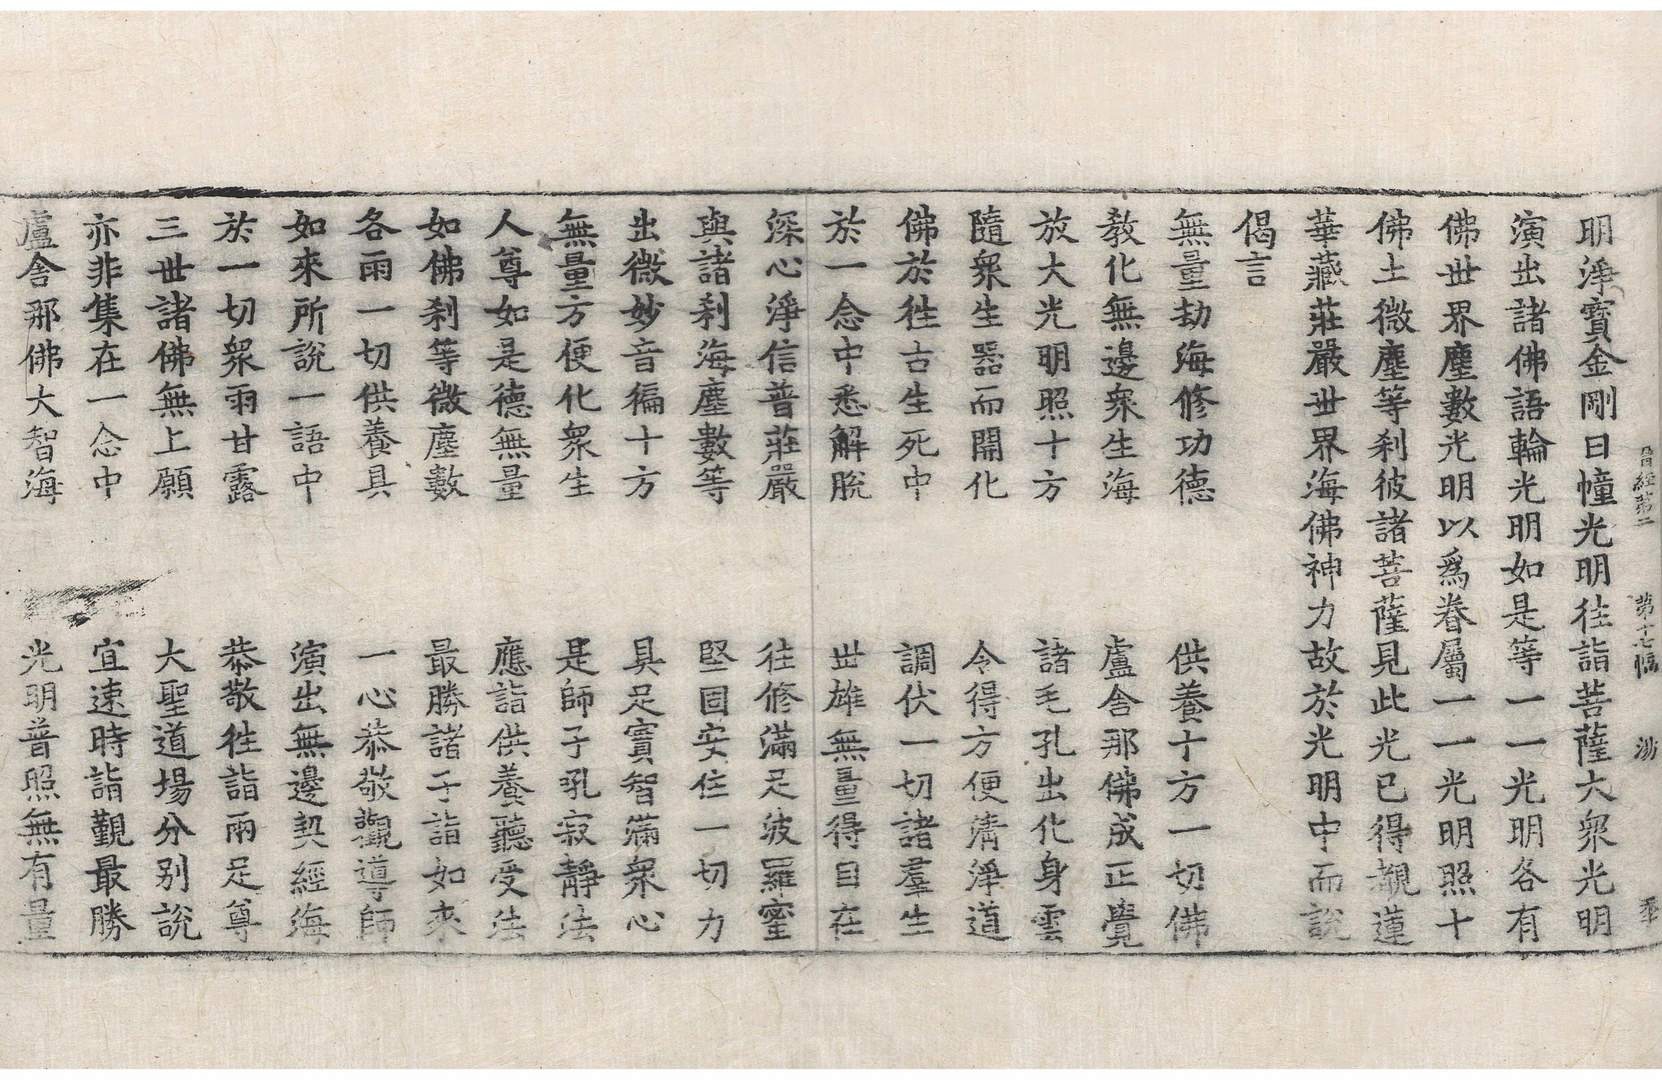 晉經第二 第十七幅 㴑 垂
明淨寶金剛日幢光明往詣菩薩大衆光明
演出諸佛語輪光明如是等一一光明各有
佛世界塵數光明以爲眷屬一一光明照十
佛土微塵等刹彼諸菩薩見此光已得覩蓮
華藏莊嚴世界海佛神力故於光明中而說
偈言
無量劫海修功德 供養十方一切佛
教化無邊衆生海 盧舍那佛成正覺
放大光明照十方 諸毛孔出化身雲
隨衆生器而開化 令得方便清淨道
佛於往古生死中 調伏一切諸羣生
於一念中悉解脫 世雄無量得自在
深心淨信普莊嚴 往修滿足波羅蜜
與諸刹海塵數等 堅固安住一切力
出微妙音徧十方 具足寶智滿衆心
無量方便化衆生 是師子吼寂靜法
人尊如是德無量 應詣供養聽受法
如佛刹等微塵數 最勝諸子詣如來
各雨一切供養具 一心恭敬觀導師
如來所說一語中 演出無邊契經海
於一切衆雨甘露 恭敬往詣兩足尊
三世諸佛無上願 大聖道場分別說
亦非集在一念中 宜速時詣觀最勝
盧舍那佛大智海 光明普照無有量